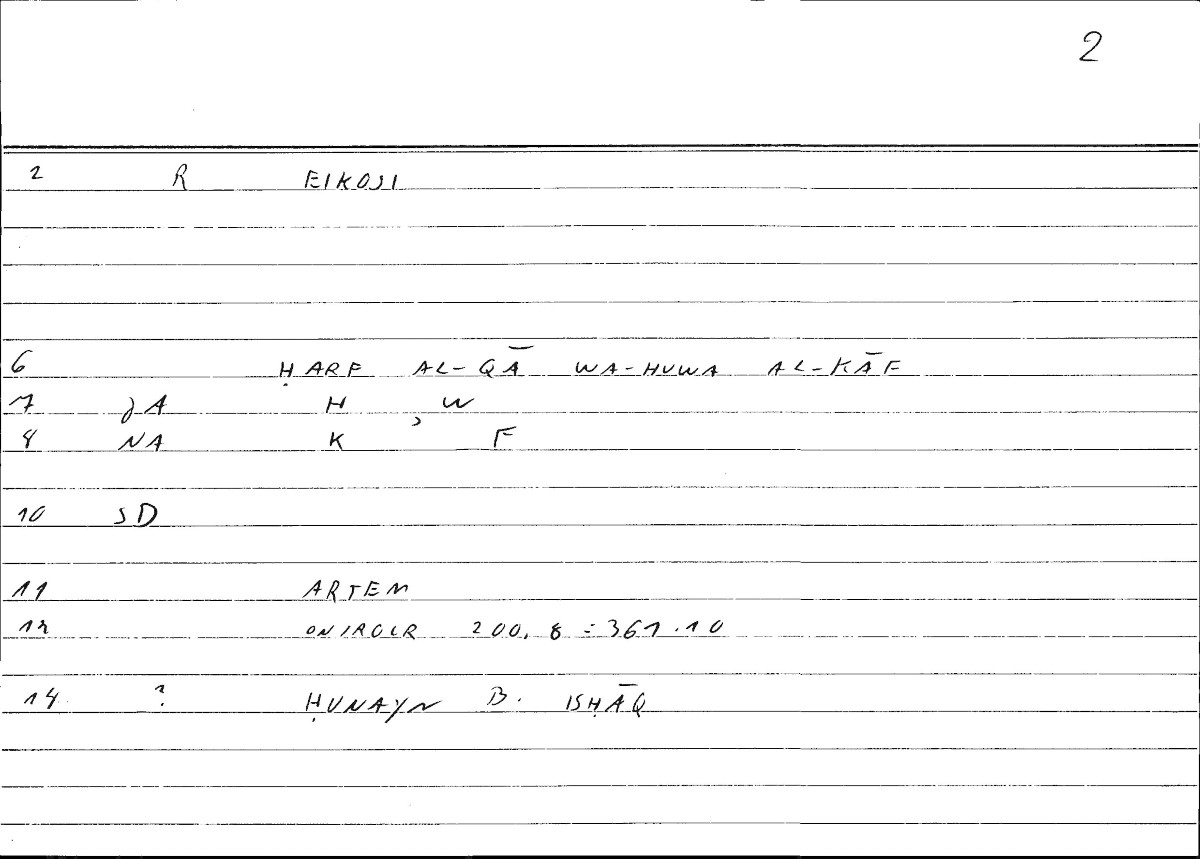 2
2 R EIKOSI
6 ḤARF AL-QĀ WA-HUWA AL-KĀF
7 JA H , W
8 NA K F
10 SD
11 ARTEM
12 ONIROCR 200, 8 = 361.10
14 ? ḤUNAYN B. ISḤĀQ